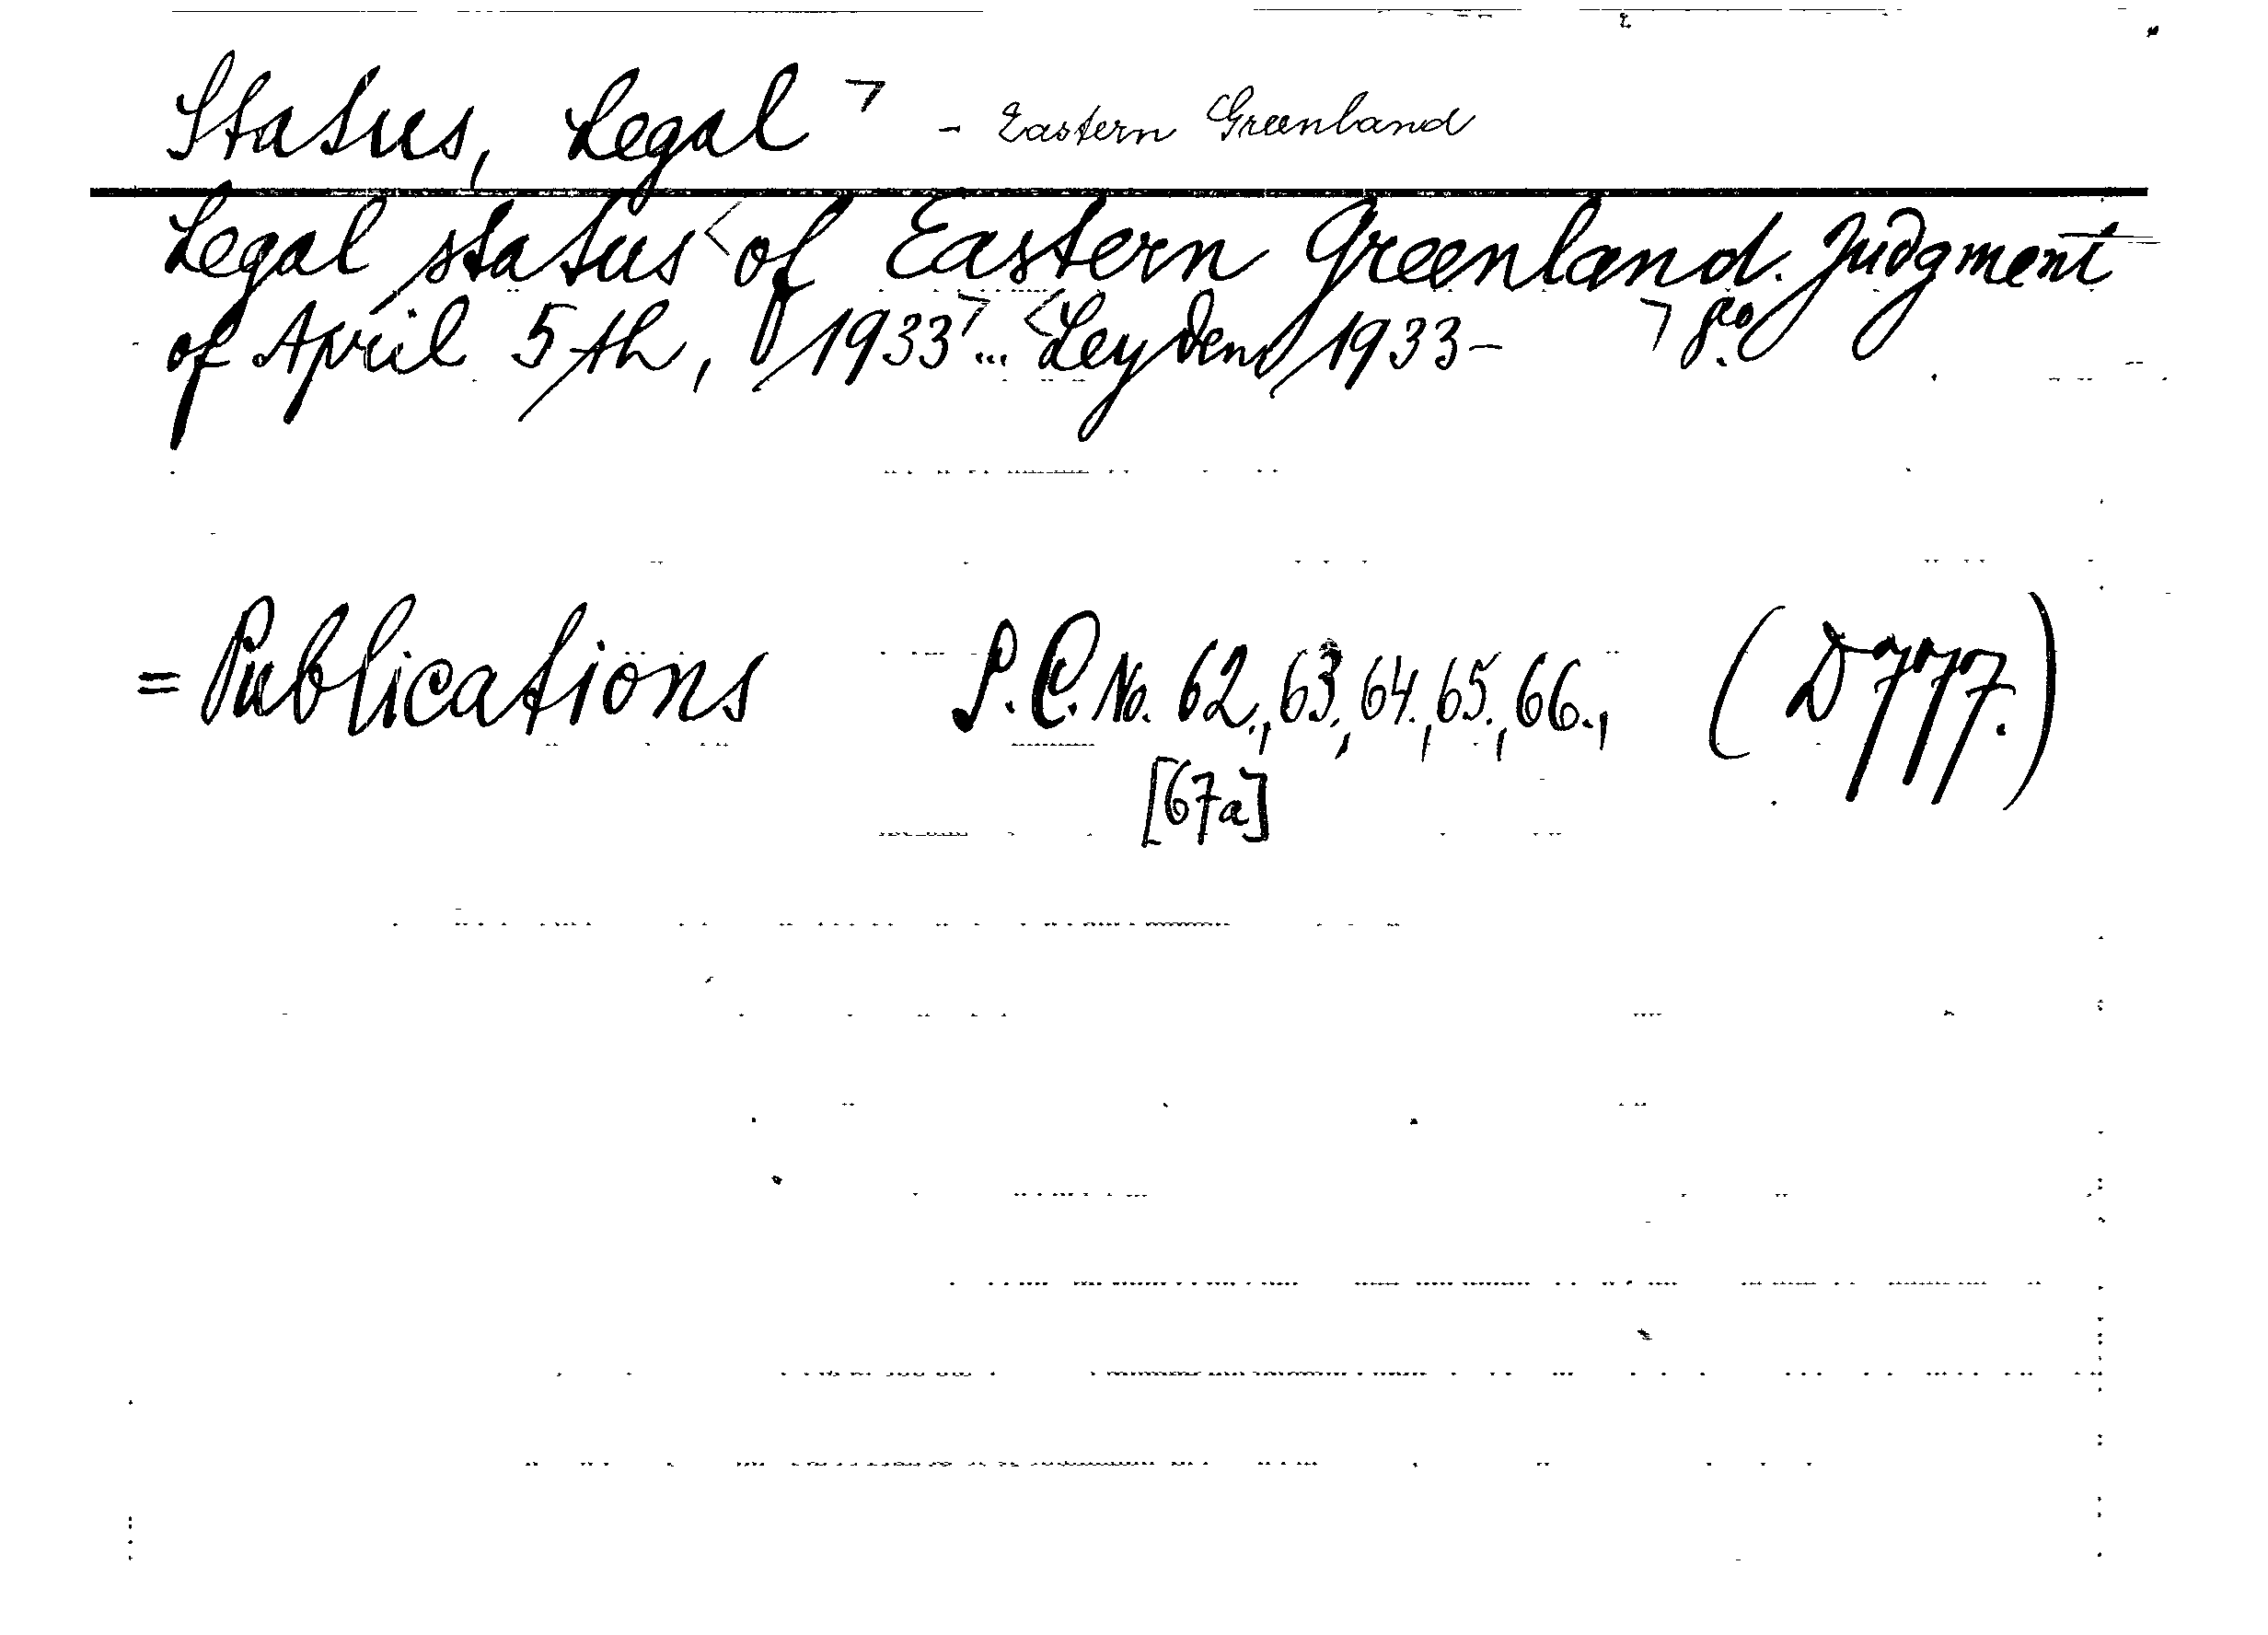 Status, Legal ¬ - Eastern Greenland
Legal status < of Eastern Greenland. Judgment
of April 5th, 1933 ¬ ... < Leyden 1933- ¬ 8o.
= Publications S.C. No. 62., 63., 64., 65., 66., (D777.)
[67a]